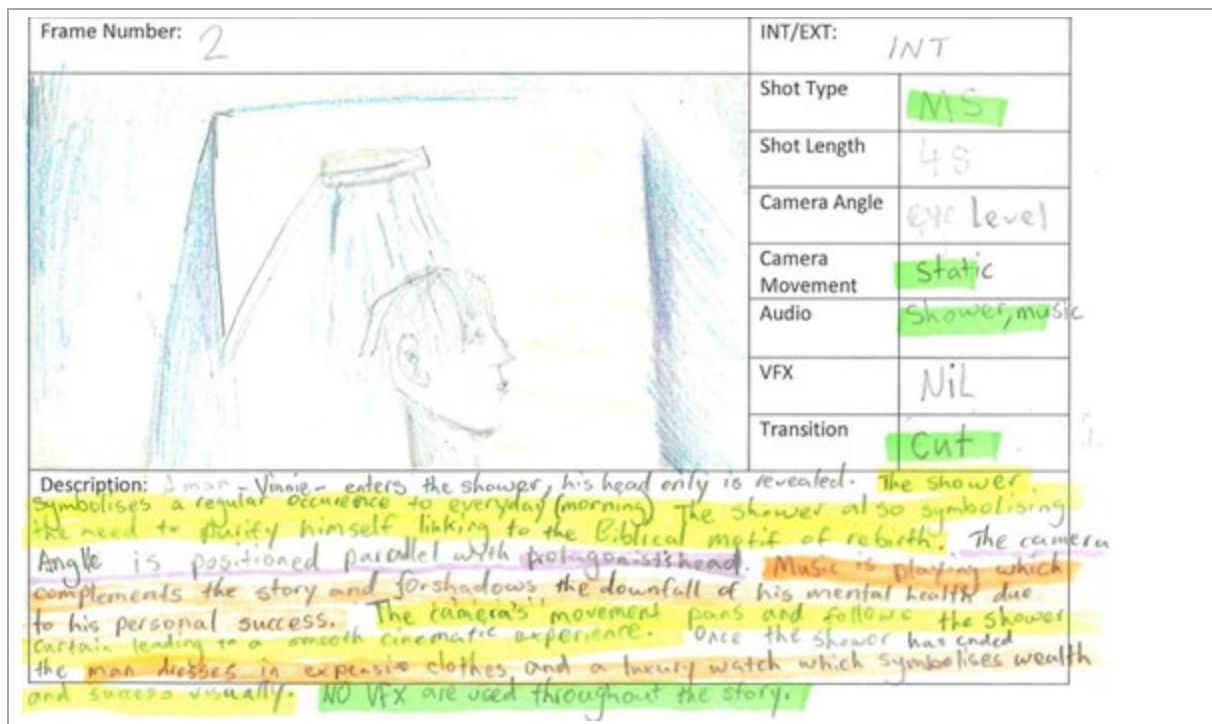 Frame Number: 2
INT/EXT: INT
Shot Type MS
Shot Length 4S
Camera Angle eye level
Camera Movement static
Audio Shower, music
VFX NiL
Transition Cut
Description: A man - Vinnie - enters the shower, his head only is revealed. The shower
symbolises a regular occurence to everyday (morning) The shower also symbolising
the need to purify himself linking to the Biblical motif of rebirth. The camera
Angle is positioned parallel with protagonists head. Music is playing which
complements the story and forshadows the downfall of his mental health due
to his personal success. The camera's movement pans and follows the shower
curtain leading to a smooth cinematic experience. Once the shower has ended
the man dresses in expensive clothes and a luxury watch which symbolises wealth
and success visually. NO VFX are used throughout the story.